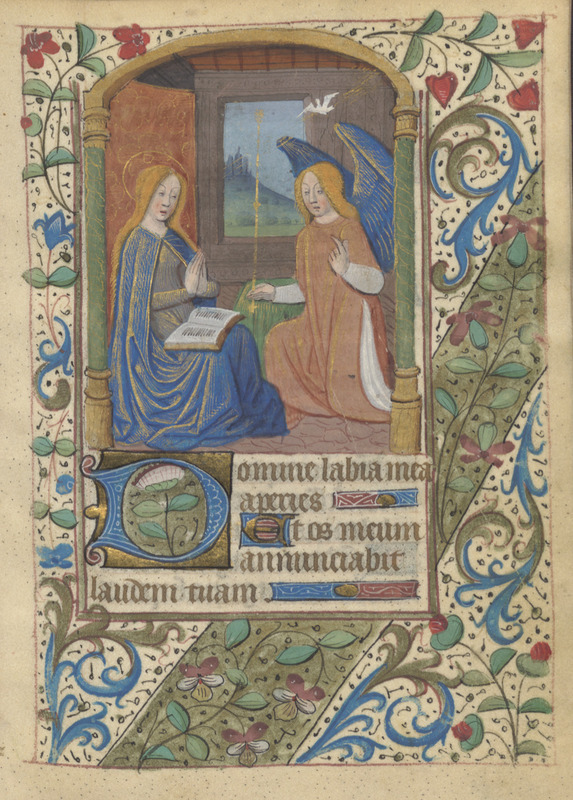 Domine labia mea
aperies
Et os meum
annunciabit
laudem tuam